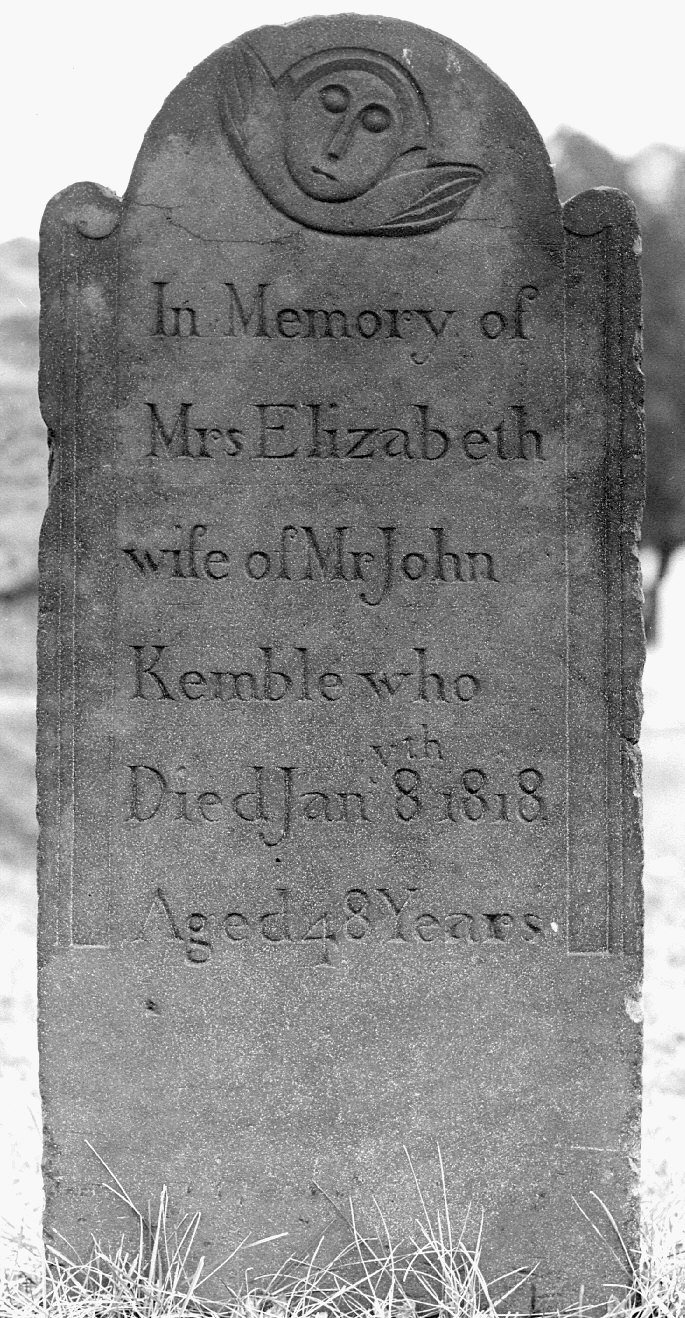 In Memory of
Mrs Elizabeth
wife of Mr John
Kemble who
Died Jan yth 8 1818
Aged 48 Years